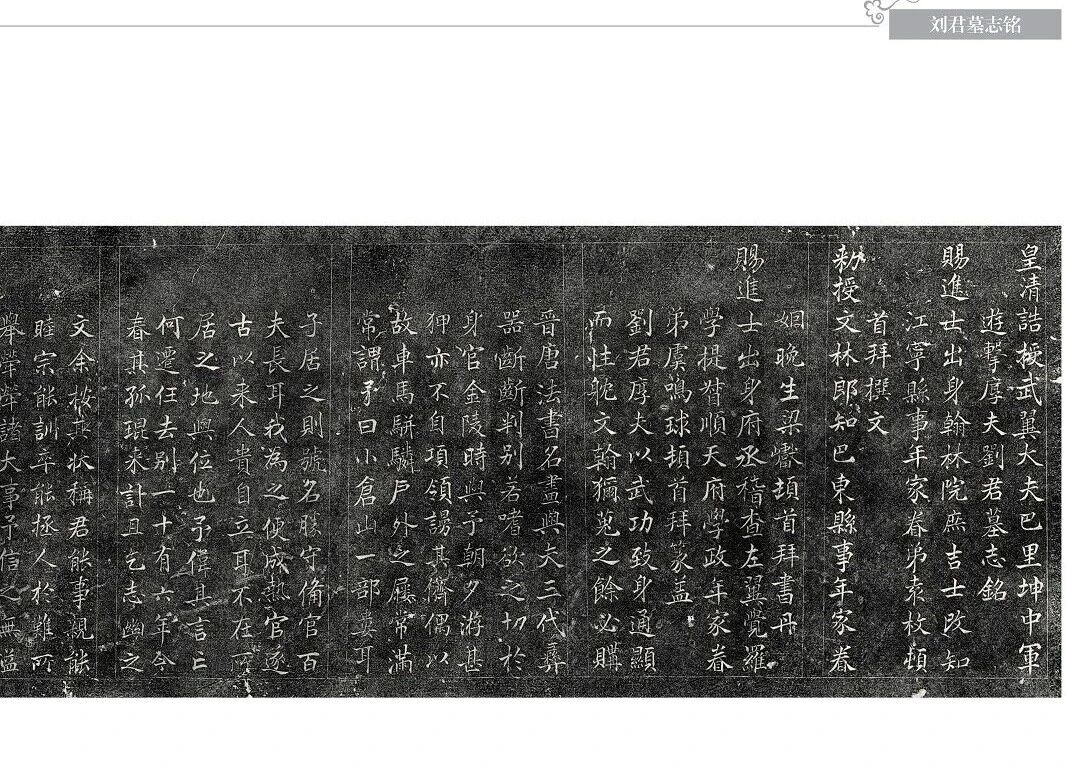 刘君墓志铭
皇清誥授武翼大夫巴里坤中軍
遊擊厚夫劉君墓志銘
賜進士出身翰林院庶吉士改知
江寧縣事年家眷弟袁枚頓
首拜撰文
勑授文林郎知巴東縣事年家眷
姻晚生梁巘頓首拜書丹
賜進士出身府丞稽查左翼覺羅
學提督順天府學政年家眷
弟虞鳴球頓首拜篆蓋
劉君厚夫以武功致身通顯
而性躭文翰獮蒐之餘必購
晉唐法書名畫與夫三代彝
器斷斷判别若嗜欲之切於
身官金陵時與予朝夕游甚
狎亦不自項領謁其儕偶以
故車馬駢驎戶外之屨常滿
常謂予曰小倉山一部婁耳
子居之則號名勝守備官百
夫長耳我為之便成熱官遂
古以来人貴自立耳不在所
居之地與位也予偉其言亡
何遷任去别一十有六年今
春其孤琨来訃且乞志幽之
文余按其狀稱君能事親能
睦宗能訓卒能拯人於難所
舉犖犖諸大事予信之無溢